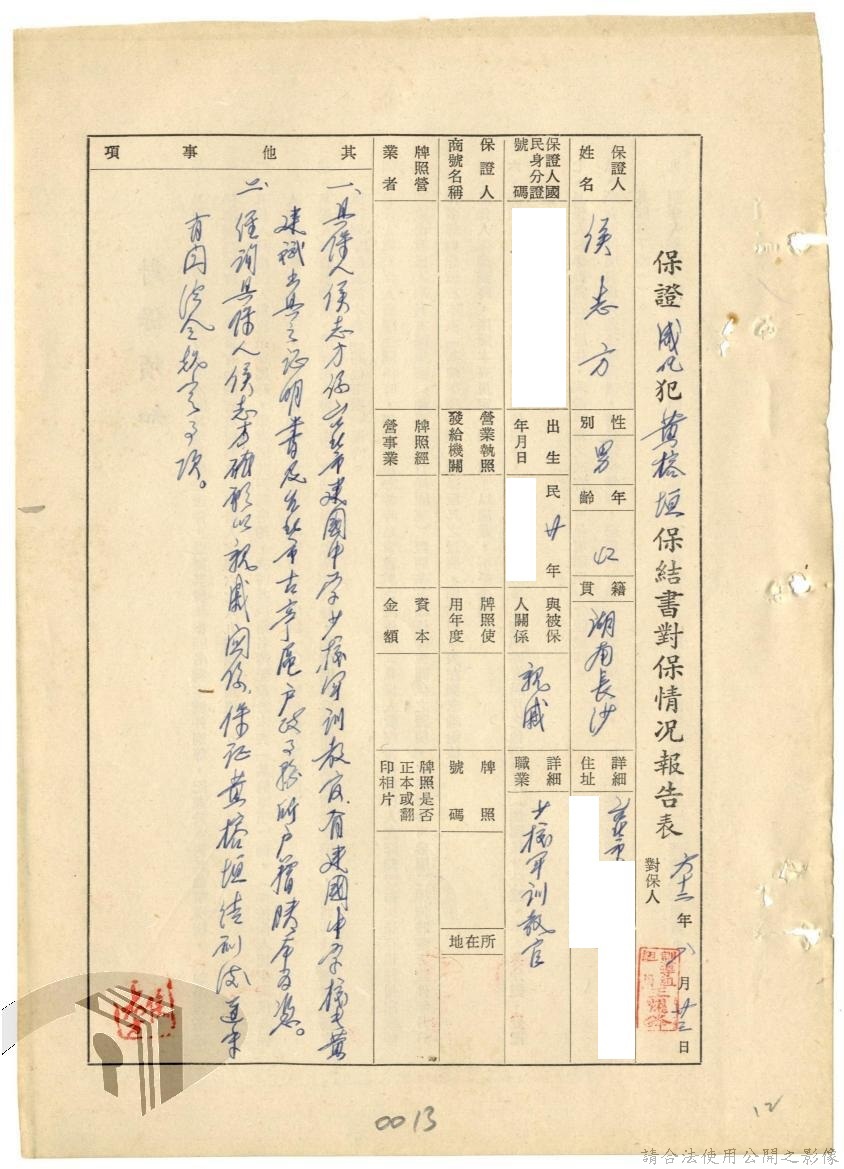 保證感化犯黃榕垣保結書對保情況報告表
六十二年 月廿三日
對保人
保證人姓名
侯志方
性別
男
年齡
42
籍貫
湖南長沙
詳細住址
台北市
保證人國民身分證號碼
出生年月日
民 廿 年
與被保人關係
親戚
詳細職業
少校軍訓教官
保證人商號名稱
營業執照發給機關
牌照使用年度
牌照號碼
所在地
牌照營業者
牌照經營事業
資本金額
牌照是否正本或翻印相片
其他事項
一、具保人侯志方係台北市建國中學少校軍訓教官、有建國中學校長黃
建斌出具之証明書及台北市古亭區戶政事務所戶籍謄本為憑。
二、經詢具保人侯志方確願以親戚關係、保証黃榕垣徒刑後遵守
有関法令規定事項。
0013
12
請合法使用公開之影像